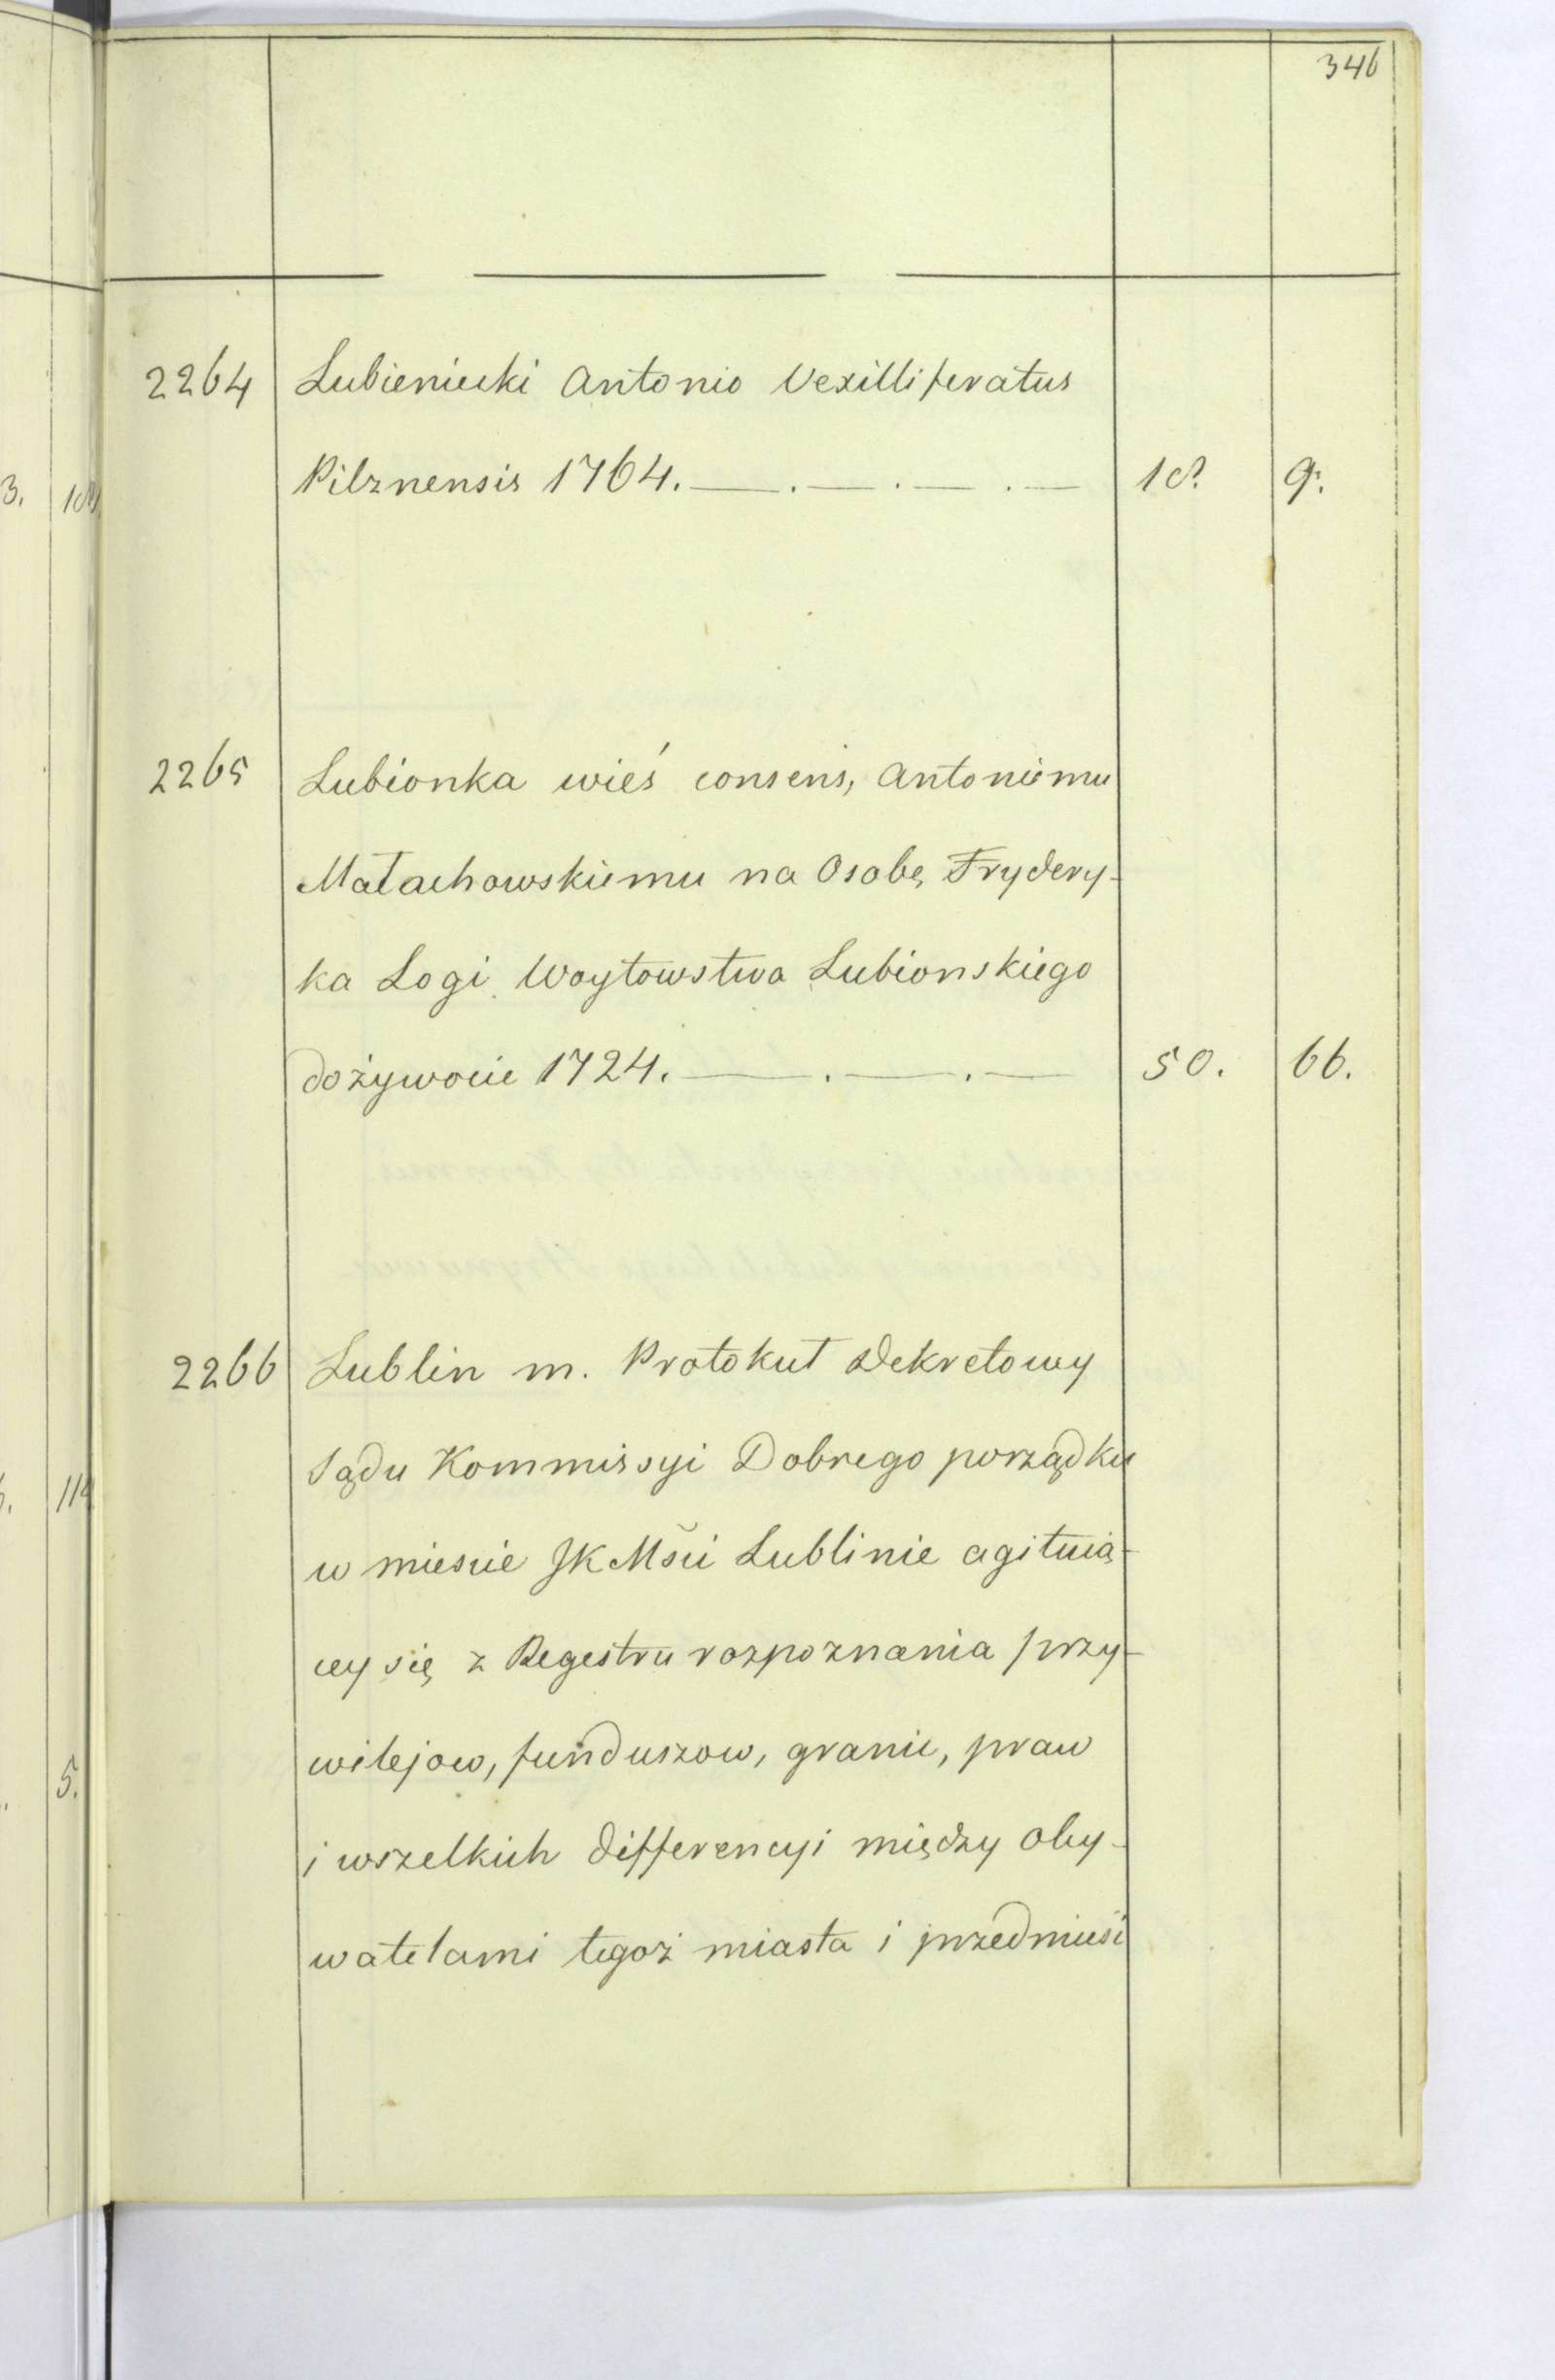 346
2264 Lubieniecki Antonio Vexilliferatus
Pilznensis 1764. — . — . — . — 18. 9.
2265 Lubionka wieś consens, Antoniemu
Małachowskiemu na Osobę Frydery-
ka Logi Woytowstwa Lubionskiego
dożywocie 1724. — . — . — 50. 66.
2266 Lublin m. Protokuł Dekretowy
Sądu Kommissyi Dobrego porządku
w miescie JKMści Lublinie agituią-
cey się z Regestru rozpoznania przy-
wilejow, funduszow, granic, praw
i wszelkich differencyi między oby-
watelami tegoż miasta i przedmieść